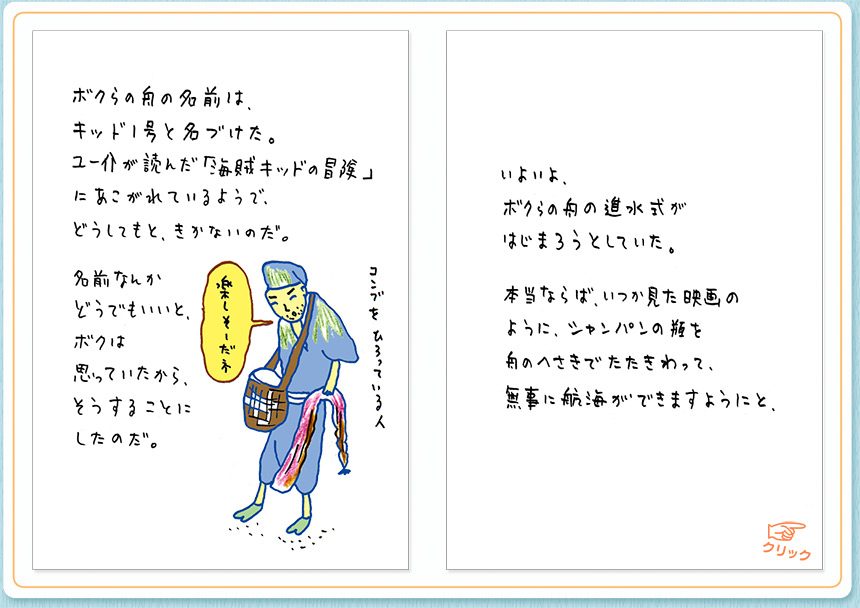 ボクらの舟の名前は、
キッド1号と名づけた。
ユー介が読んだ「海賊キッドの冒険」
にあこがれているようで、
どうしてもと、きかないのだ。
名前なんか
どうでもいいと、
ボクは
思っていたから、
そうすることに
したのだ。
楽しそーだネ
コンブをひろっている人
いよいよ、
ボクらの舟の進水式が
はじまろうとしていた。
本当ならば、いつか見た映画の
ように、シャンパンの瓶を
舟のへさきでたたきわって、
無事に航海ができますようにと、
クリック